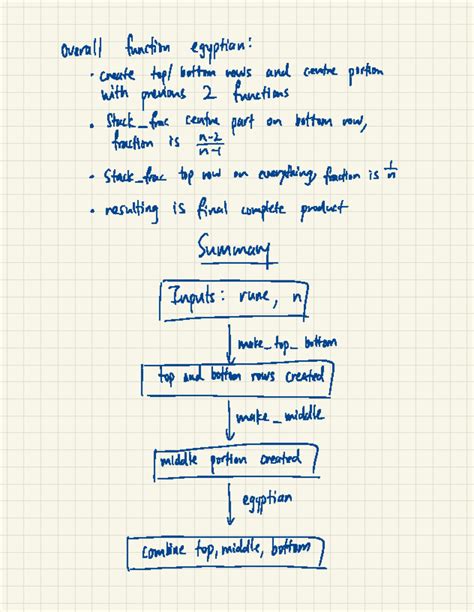 Overall function egyptian:
• create top/bottom rows and centre portion
with previous 2 functions
• Stack_frac centre part on bottom row,
fraction is n-2/n-1
• Stack_frac top row on everything, fraction is 1/n
• resulting is final complete product
Summary
Inputs: rune, n
make_top_bottom
top and bottom rows created
make_middle
middle portion created
egyptian
combine top, middle, bottom